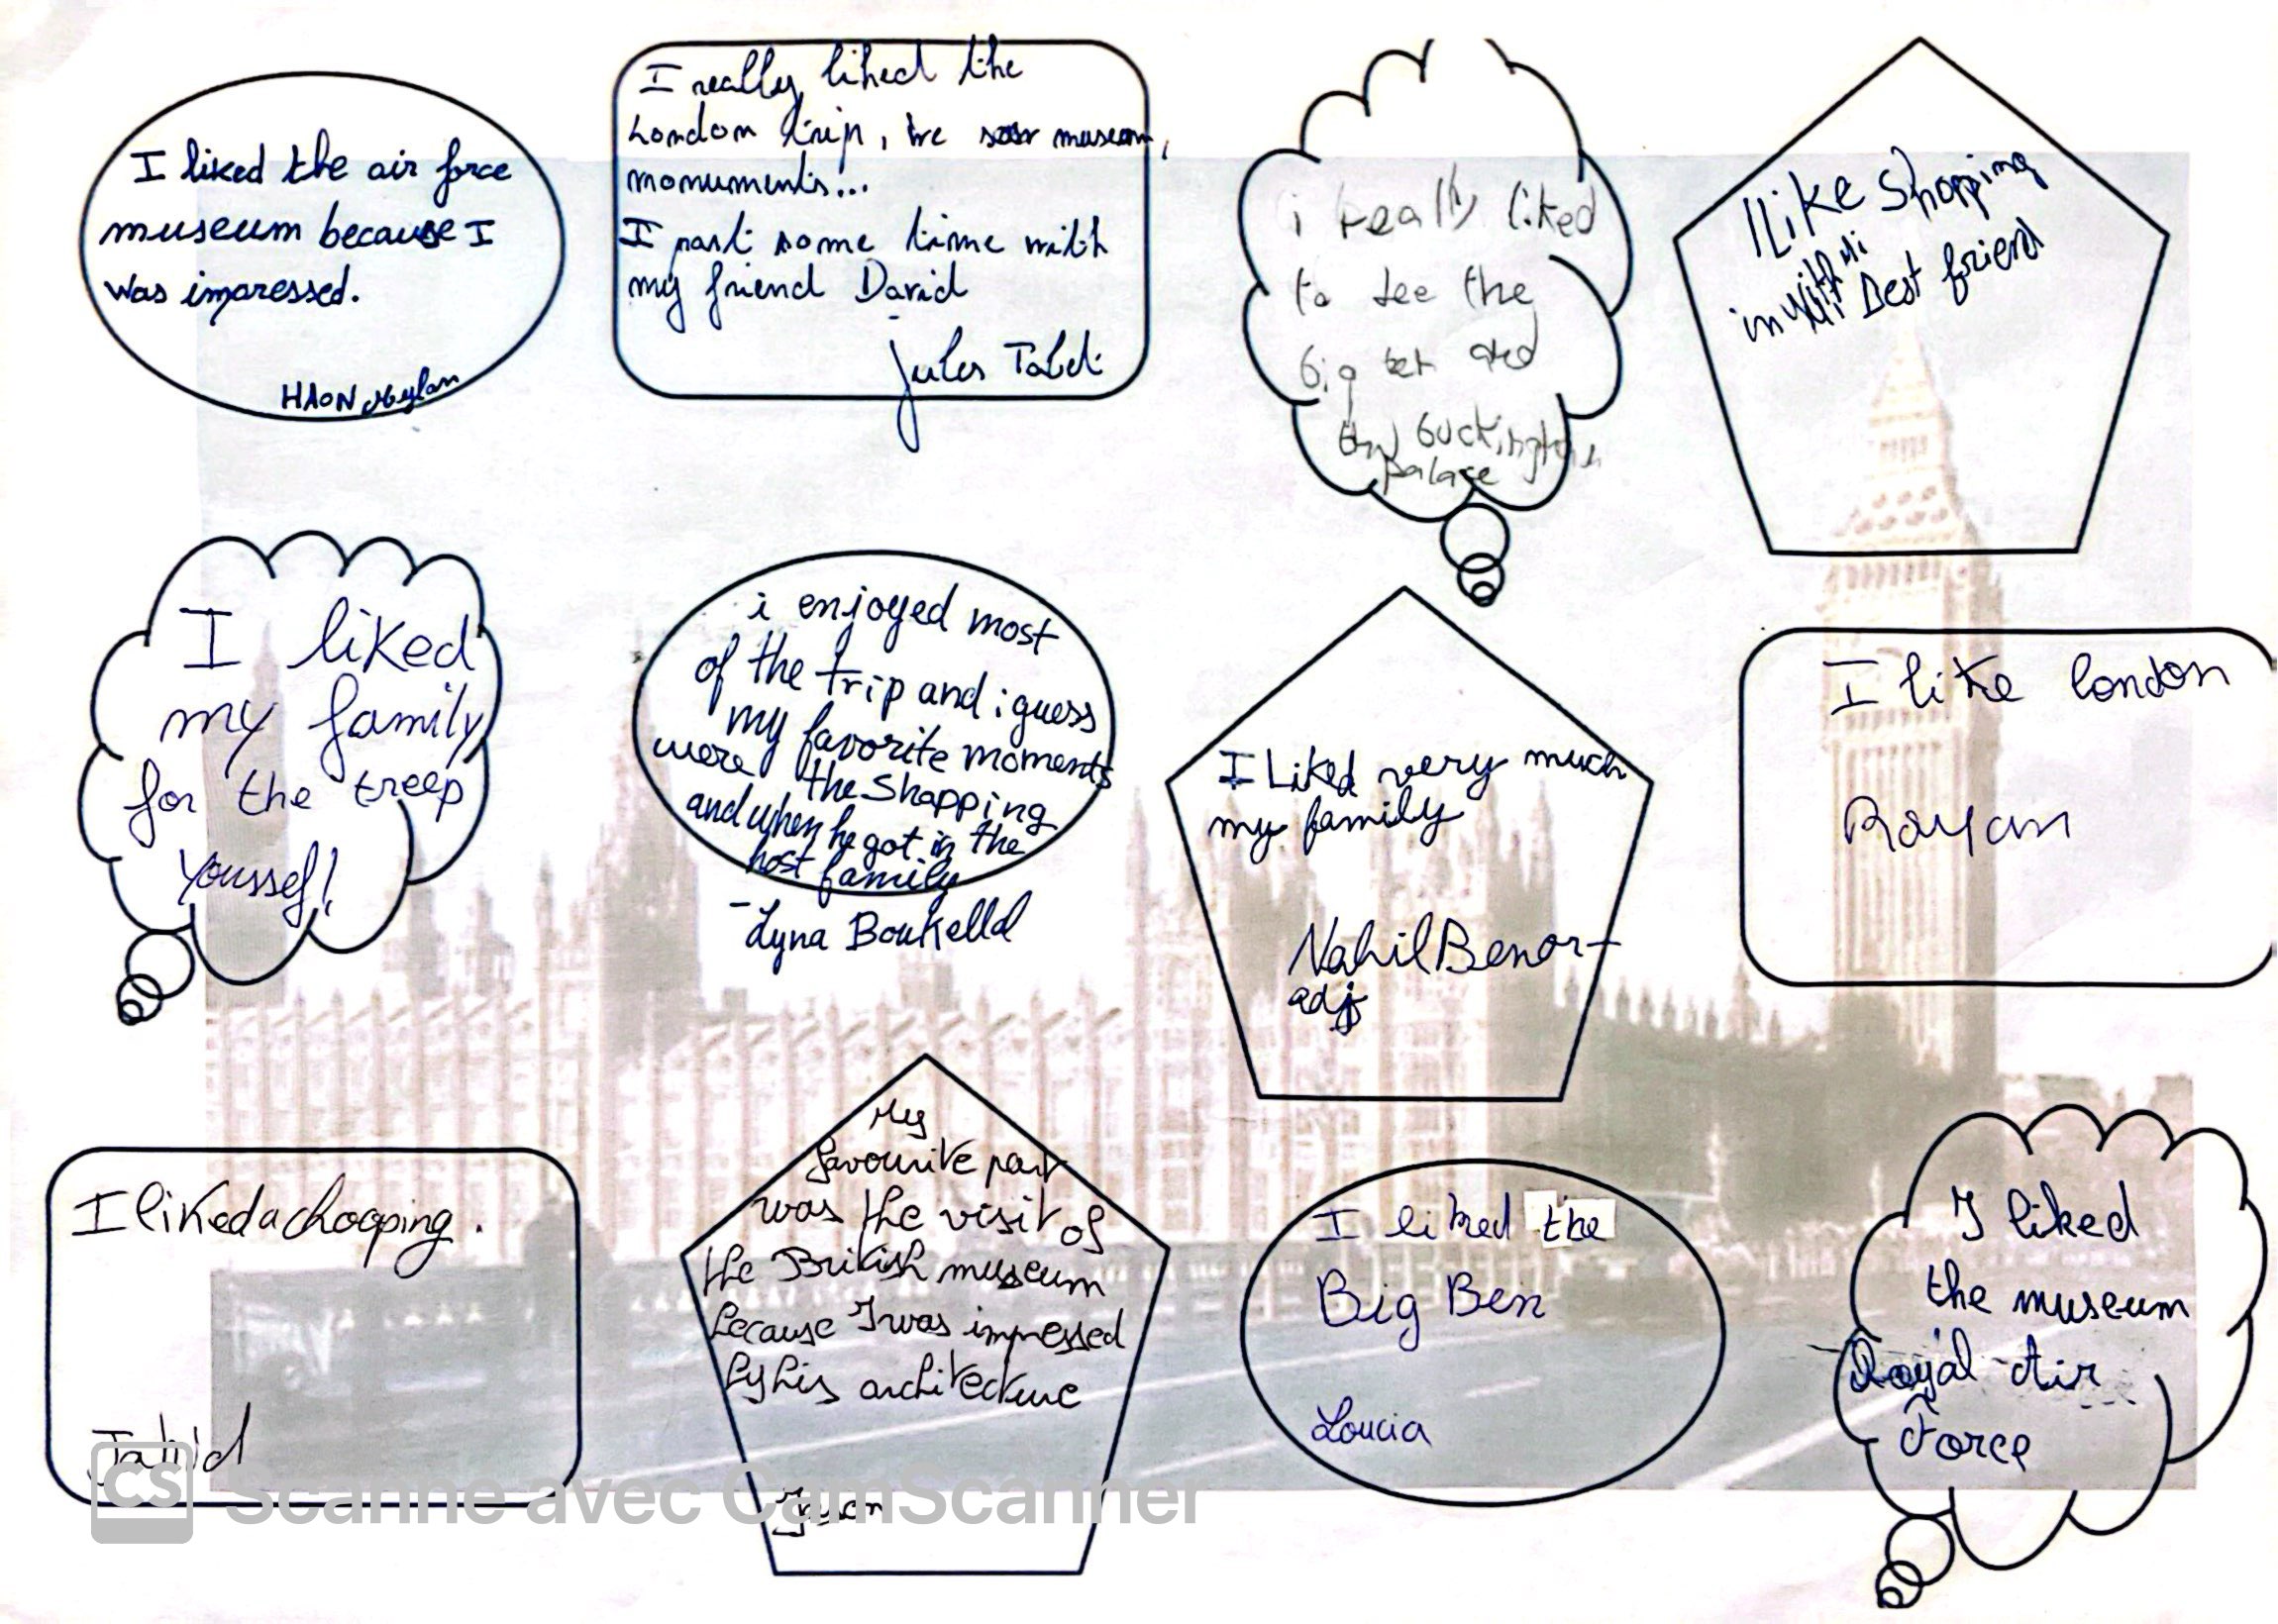 I liked the air force
museum because I
was impressed.
HAON
I really liked the
London trip, we saw museum,
monuments...
I past some time with
my friend David
Jules
i really liked
to see the
big ben and
buckingham
palace
I like shopping
with
best friend
I liked
my family
for the treep
Youssef!
i enjoyed most
of the trip and i guess
my favorite moments
were the shopping
and when he got in the
host family
- Lyna
I Liked very much
my family
Nahil Benor-
adj
I like london
Rayan
I liked a chooping.
Jahid
My
favourite part
was the visit of
the British museum
because I was impressed
by his architecture
Jason
I liked the
Big Ben
Loucia
I liked
the museum
Royal Air
Force
CS Scanné avec CamScanner